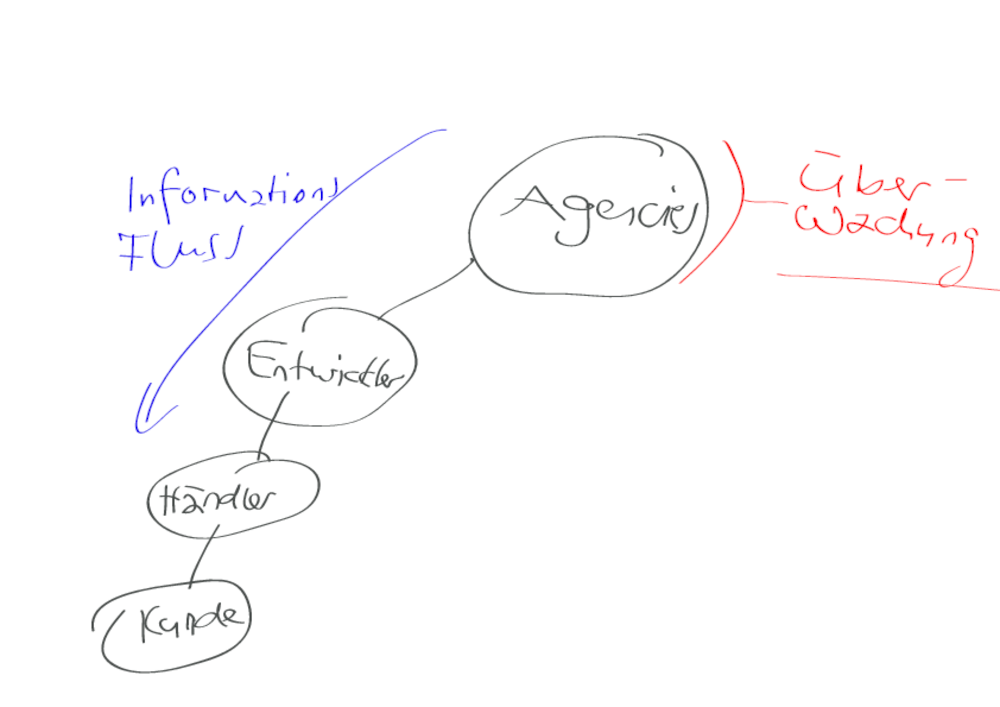 Informations
Fluss
Agencies
Über-
wachung
Entwickler
Händler
Kunde